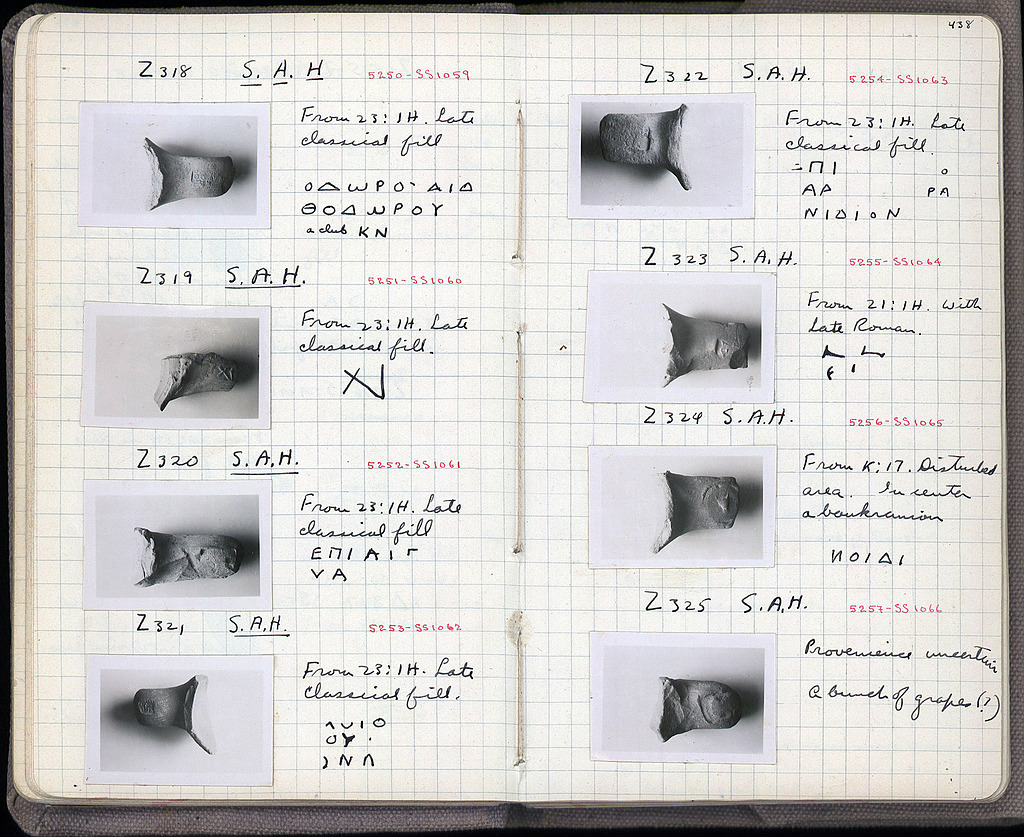 438
Z318 S. A. H 5250-SS1059
From 23:1H. Late
classical fill
ΟΔΩΡΟ· ΑΙΔ
ΘΟΔΩΡΟΥ
a club ΚΝ
Z319 S.A.H. 5251-SS1060
From 23:1H. Late
classical fill.
Z320 S.A.H. 5252-SS1061
From 23:1H. Late
classical fill
ΕΠΙΑΙΓ
VA
Z321 S.A.H. 5253-SS1062
From 23:1H. Late
classical fill.
ΟΥ·
Z322 S.A.H. 5254-SS1063
From 23:1H. Late
classical fill.
ΞΠΙ Ο
ΑΡ ΡΑ
ΝΙΔΙΟΝ
Z323 S.A.H. 5255-SS1064
From 21:1H. with
Late Roman.
Z324 S.A.H. 5256-SS1065
From K:17. Disturbed
area. In center
a boukranion
ИΟΙΔΙ
Z325 S.A.H. 5257-SS1066
Provenience uncertain
a bunch of grapes (?)